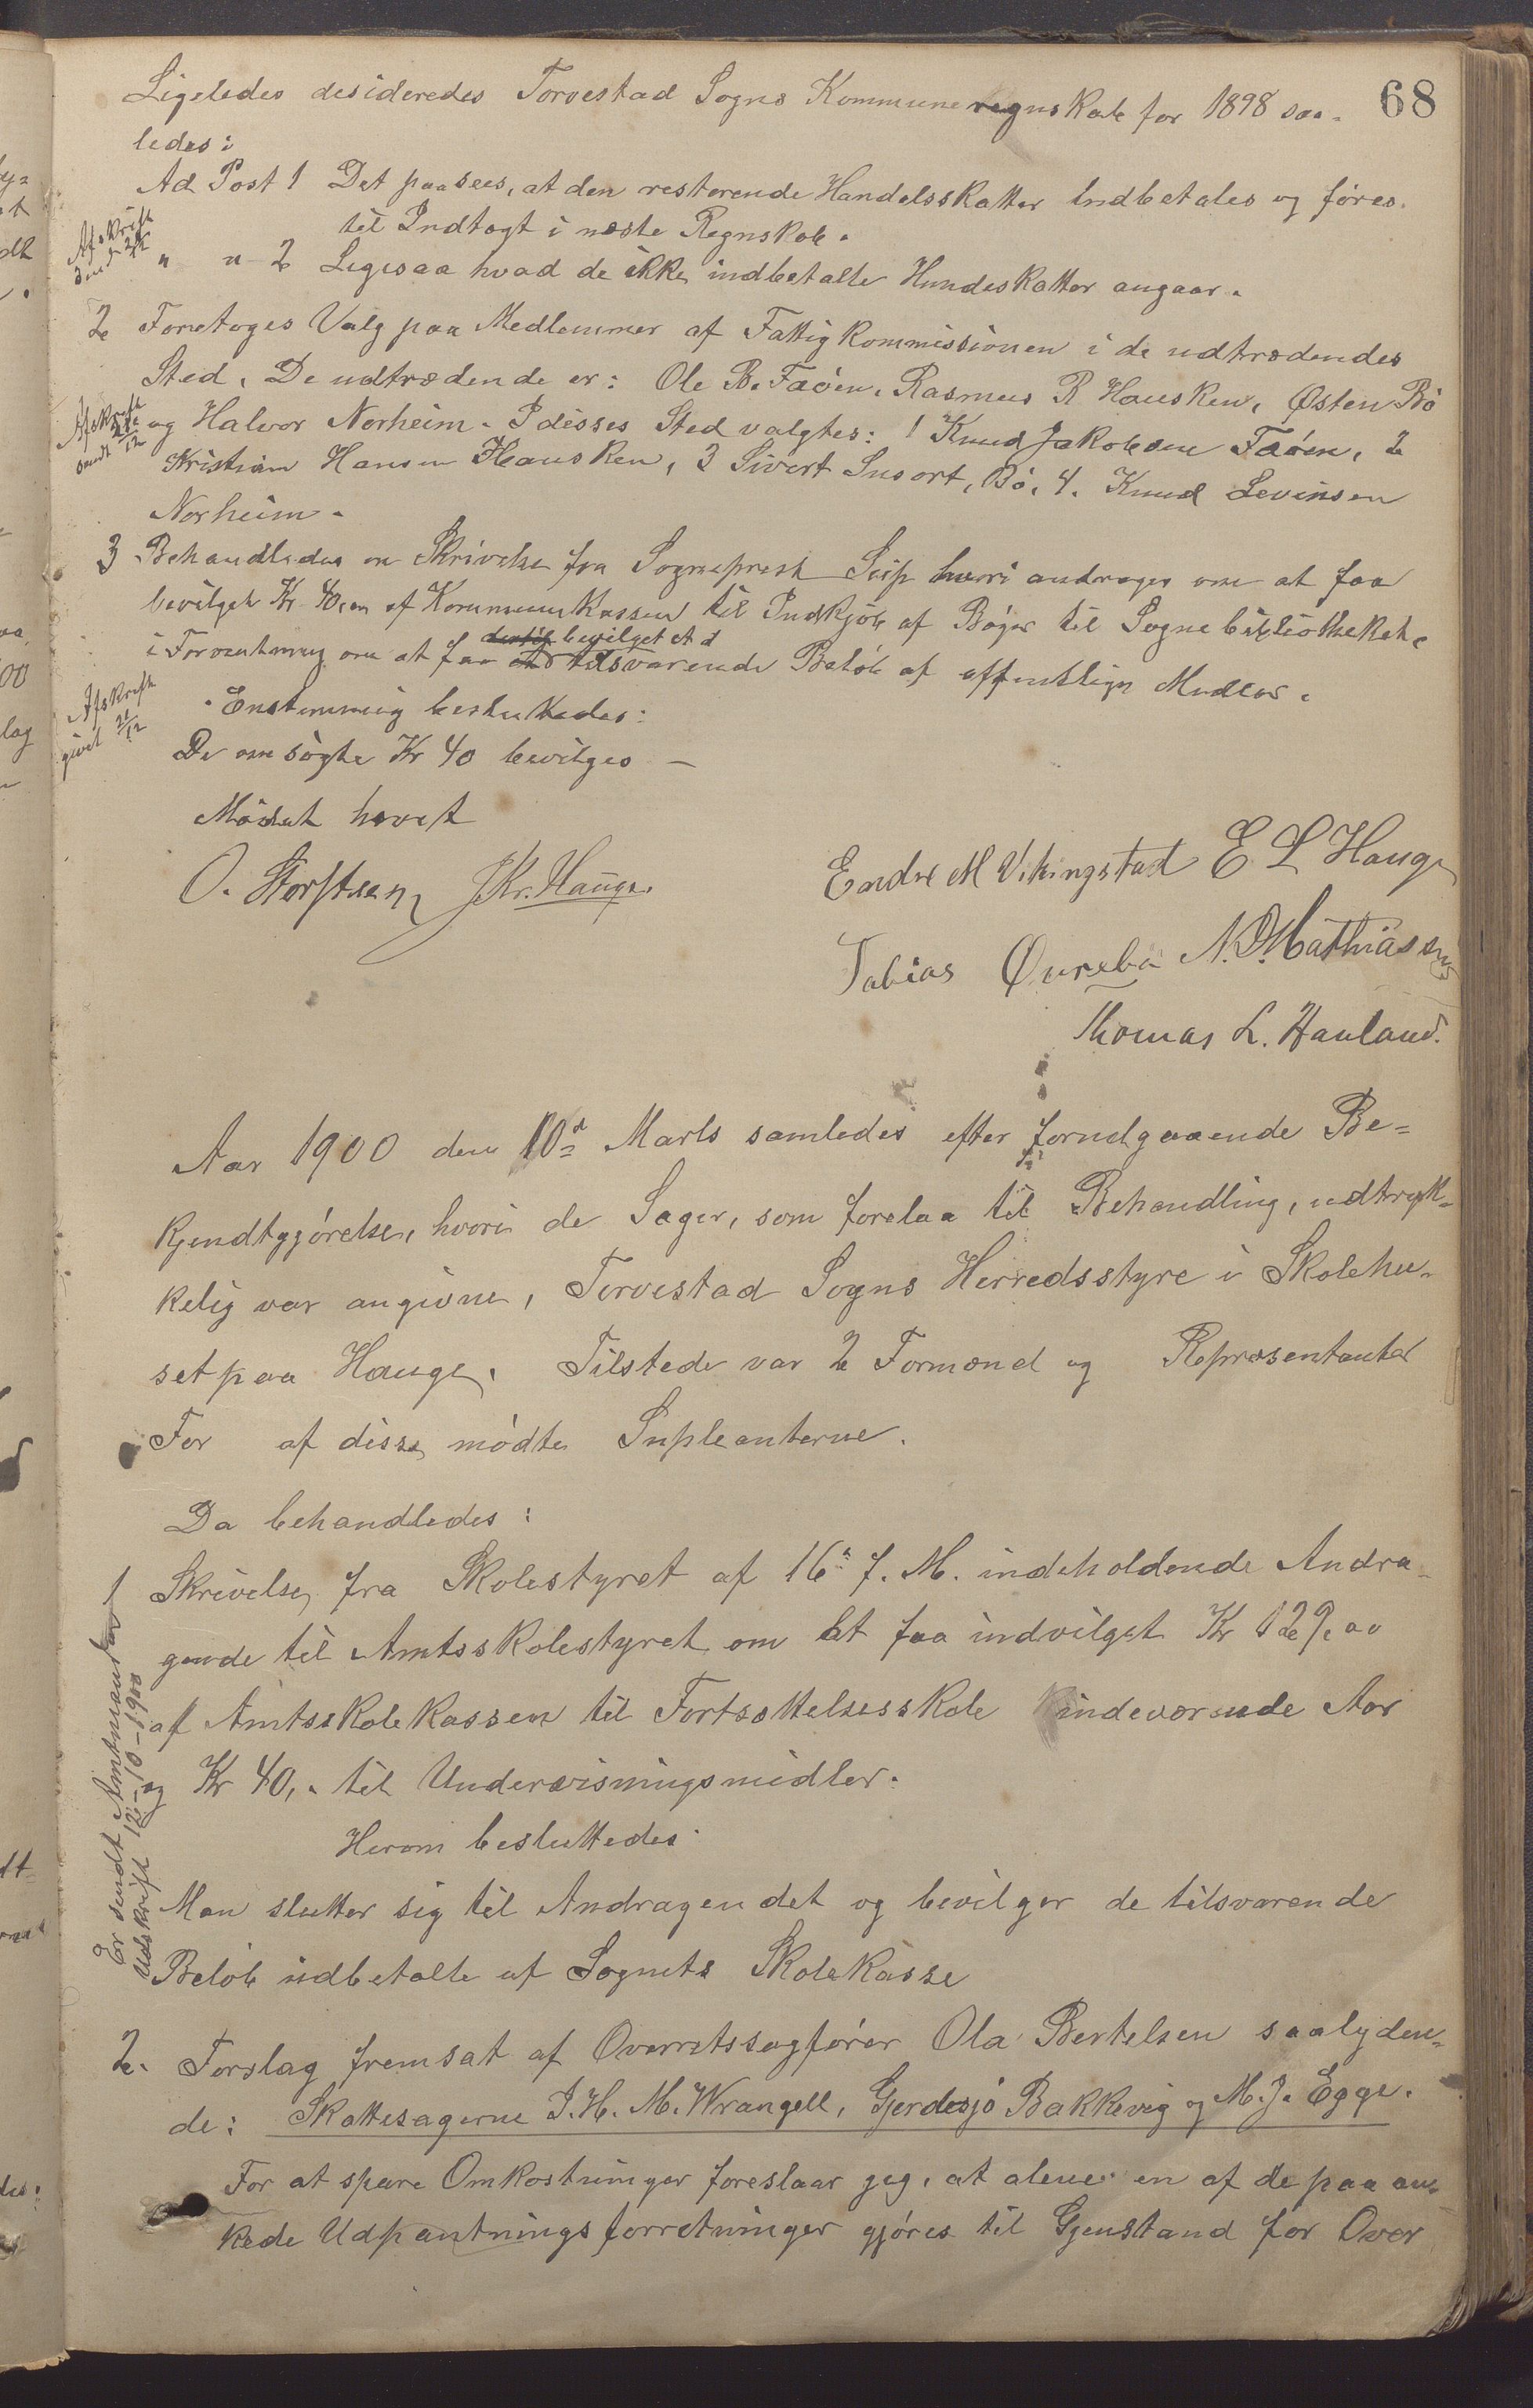 68
Ligeledes desideredes Torvestad Sogns Kommuneregnskab for 1898 saa-
ledes:
Ad Post 1 Det paasees, at den resterende Handelsskatter indbetales og føres
til Indtægt i næste Regnskab.
Afskrift
" " 2 Ligesaa hvad de ikke indbetalte Hundeskatter angaar.
2 Foretoges Valg paa Medlemmer af Fattigkommissionen i de udtrædendes
Sted. De udtrædende er: Ole B. Faøen, Rasmus R Hausken, Østen Bø
Afskrift
sendt 21/12
og Halvor Norheim. I disses Sted valgtes: 1 Knud Jakobsen Faøen, 2
Kristian Hansen Hausken, 3 Sivert Susort, Bø, 4. Knud Levinsen
Norheim.
3 Behandledes en Skrivelse fra Sogneprest Seip hvori andrages om at faa
bevilget Kr 40,00 af Kommunekassen til Indkjøb af Bøger til Sognebibliotheket,
bevilget et
i Forventning om at faa tilsvarende Beløb af offentlige Midler.
Afskrift
givet 21/12
Enstemmig besluttedes:
De omsøgte Kr 40 bevilges –
Mødet hævet
O. Storstein J Kr. Hauge.
Endre M Vikingstad E L Hauge
Tobias Øvrebø N. D. Mathiassen
Thomas L. Hauland.
Aar 1900 den 10d Marts samledes efter forudgaaende Be-
kjendtgjørelse, hvori de Sager, som forelaa til Behandling, udtryk-
kelig var angivne, Torvestad Sogns Herredsstyre i Skolehu-
set paa Hauge. Tilstede var 2 Formænd og Repræsentanter
For af disse mødte Supleanterne.
Da behandledes:
1 Skrivelse fra Skolestyret af 16 f. M. indeholdende Andra-
gende til Amtsskolestyret om at faa indvilget Kr 129,00
af Amtsskolekassen til Fortsættelsesskole indeværende Aar
og Kr 40,- til Undervisningsmidler.
Er sendt Amtmanden
Udskrift 12-10-1900
Herom besluttedes:
Man slutter sig til Andragendet og bevilger de tilsvarende
Beløb udbetalte af Sognets Skolekasse
2. Forslag fremsat af Overretssagfører Ola Bertelsen saalyden-
de: Skattesagerne J. H. M. Wrangell, Gjerdesjø Bakkevig og M. J. Egge.
For at spare Omkostninger foreslaar jeg, at alene en af de paaan-
kede Udpantningsforretninger gjøres til Gjenstand for Over